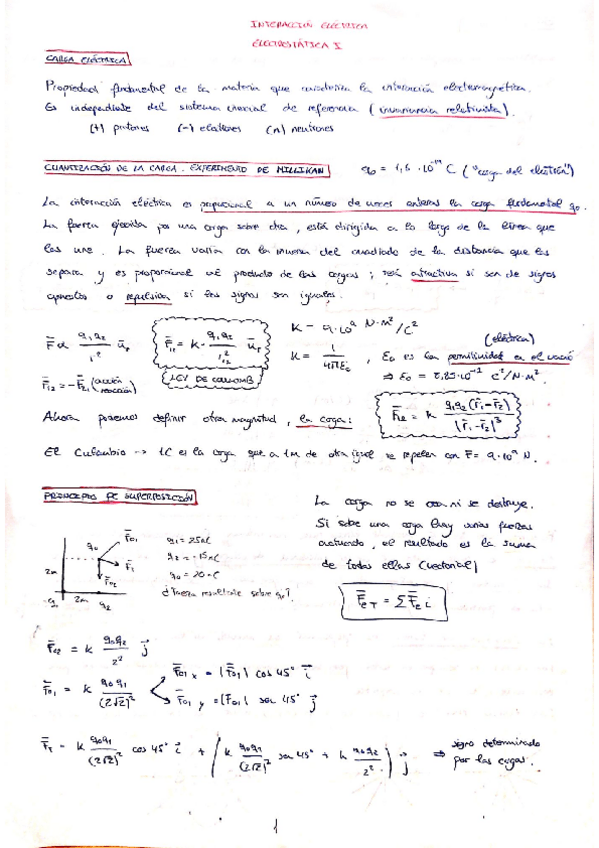 INTERACCIÓN ELÉCTRICA
ELECTROSTÁTICA I
CARGA ELÉCTRICA
Propiedad fundamental de la materia que caracteriza la interacción electromagnética.
Es independiente del sistema inercial de referencia (invariancia relativista).
(+) protones (-) electrones (n) neutrones
CUANTIZACIÓN DE LA CARGA. EXPERIMENTO DE MILLIKAN
q₀ = 1,6 · 10⁻¹⁹ C ("carga del electrón")
La interacción eléctrica es proporcional a un número de veces enteras la carga fundamental q₀.
La fuerza ejercida por una carga sobre otra, está dirigida a lo largo de la línea que
las une. La fuerza varía con la inversa del cuadrado de la distancia que las
separa y es proporcional al producto de las cargas; será atractiva si son de signos
opuestos o repulsiva si los signos son iguales.
F̄ ∝ q₁q₂/r² ū_r
F̄₁₂ = K · q₁q₂/r₁₂² ū_r
LEY DE COULOMB
F̄₁₂ = -F̄₂₁ (acción reacción)
K = 9·10⁹ N·m²/C²
K = 1/4πε₀ , ε₀ es la permitividad en el vacío (eléctrica)
⇒ ε₀ = 8,85·10⁻¹² C²/N·m².
Ahora podemos definir otra magnitud, la carga:
F̄₁₂ = K q₁q₂(r̄₁-r̄₂)/|r̄₁-r̄₂|³
El Culombio -> 1C es la carga que a 1m de otra igual se repelen con F = 9·10⁹ N.
PRINCIPIO DE SUPERPOSICIÓN
La carga no se crea ni se destruye.
Si sobre una carga hay varias fuerzas
actuando, el resultado es la suma
de todas ellas (vectorial)
F̄e T = ΣF̄e i
q₀ F̄₀₁ F̄T F̄₀₂
2m 2m q₂
q₁ = 25nC
q₂ = -15nC
q₀ = 20nC
¿Fuerza resultante sobre q₀?
F̄₀₂ = K q₀q₂/2² j
F̄₀₁ = K q₀q₁/(2√2)²
F̄₀₁ x = |F̄₀₁| cos 45° i
F̄₀₁ y = |F̄₀₁| sen 45° j
F̄T = K q₀q₁/(2√2)² cos 45° i + (K q₀q₁/(2√2)² sen 45° + K q₀q₂/2²) j ⇒ signo determinado
por las cargas.
1